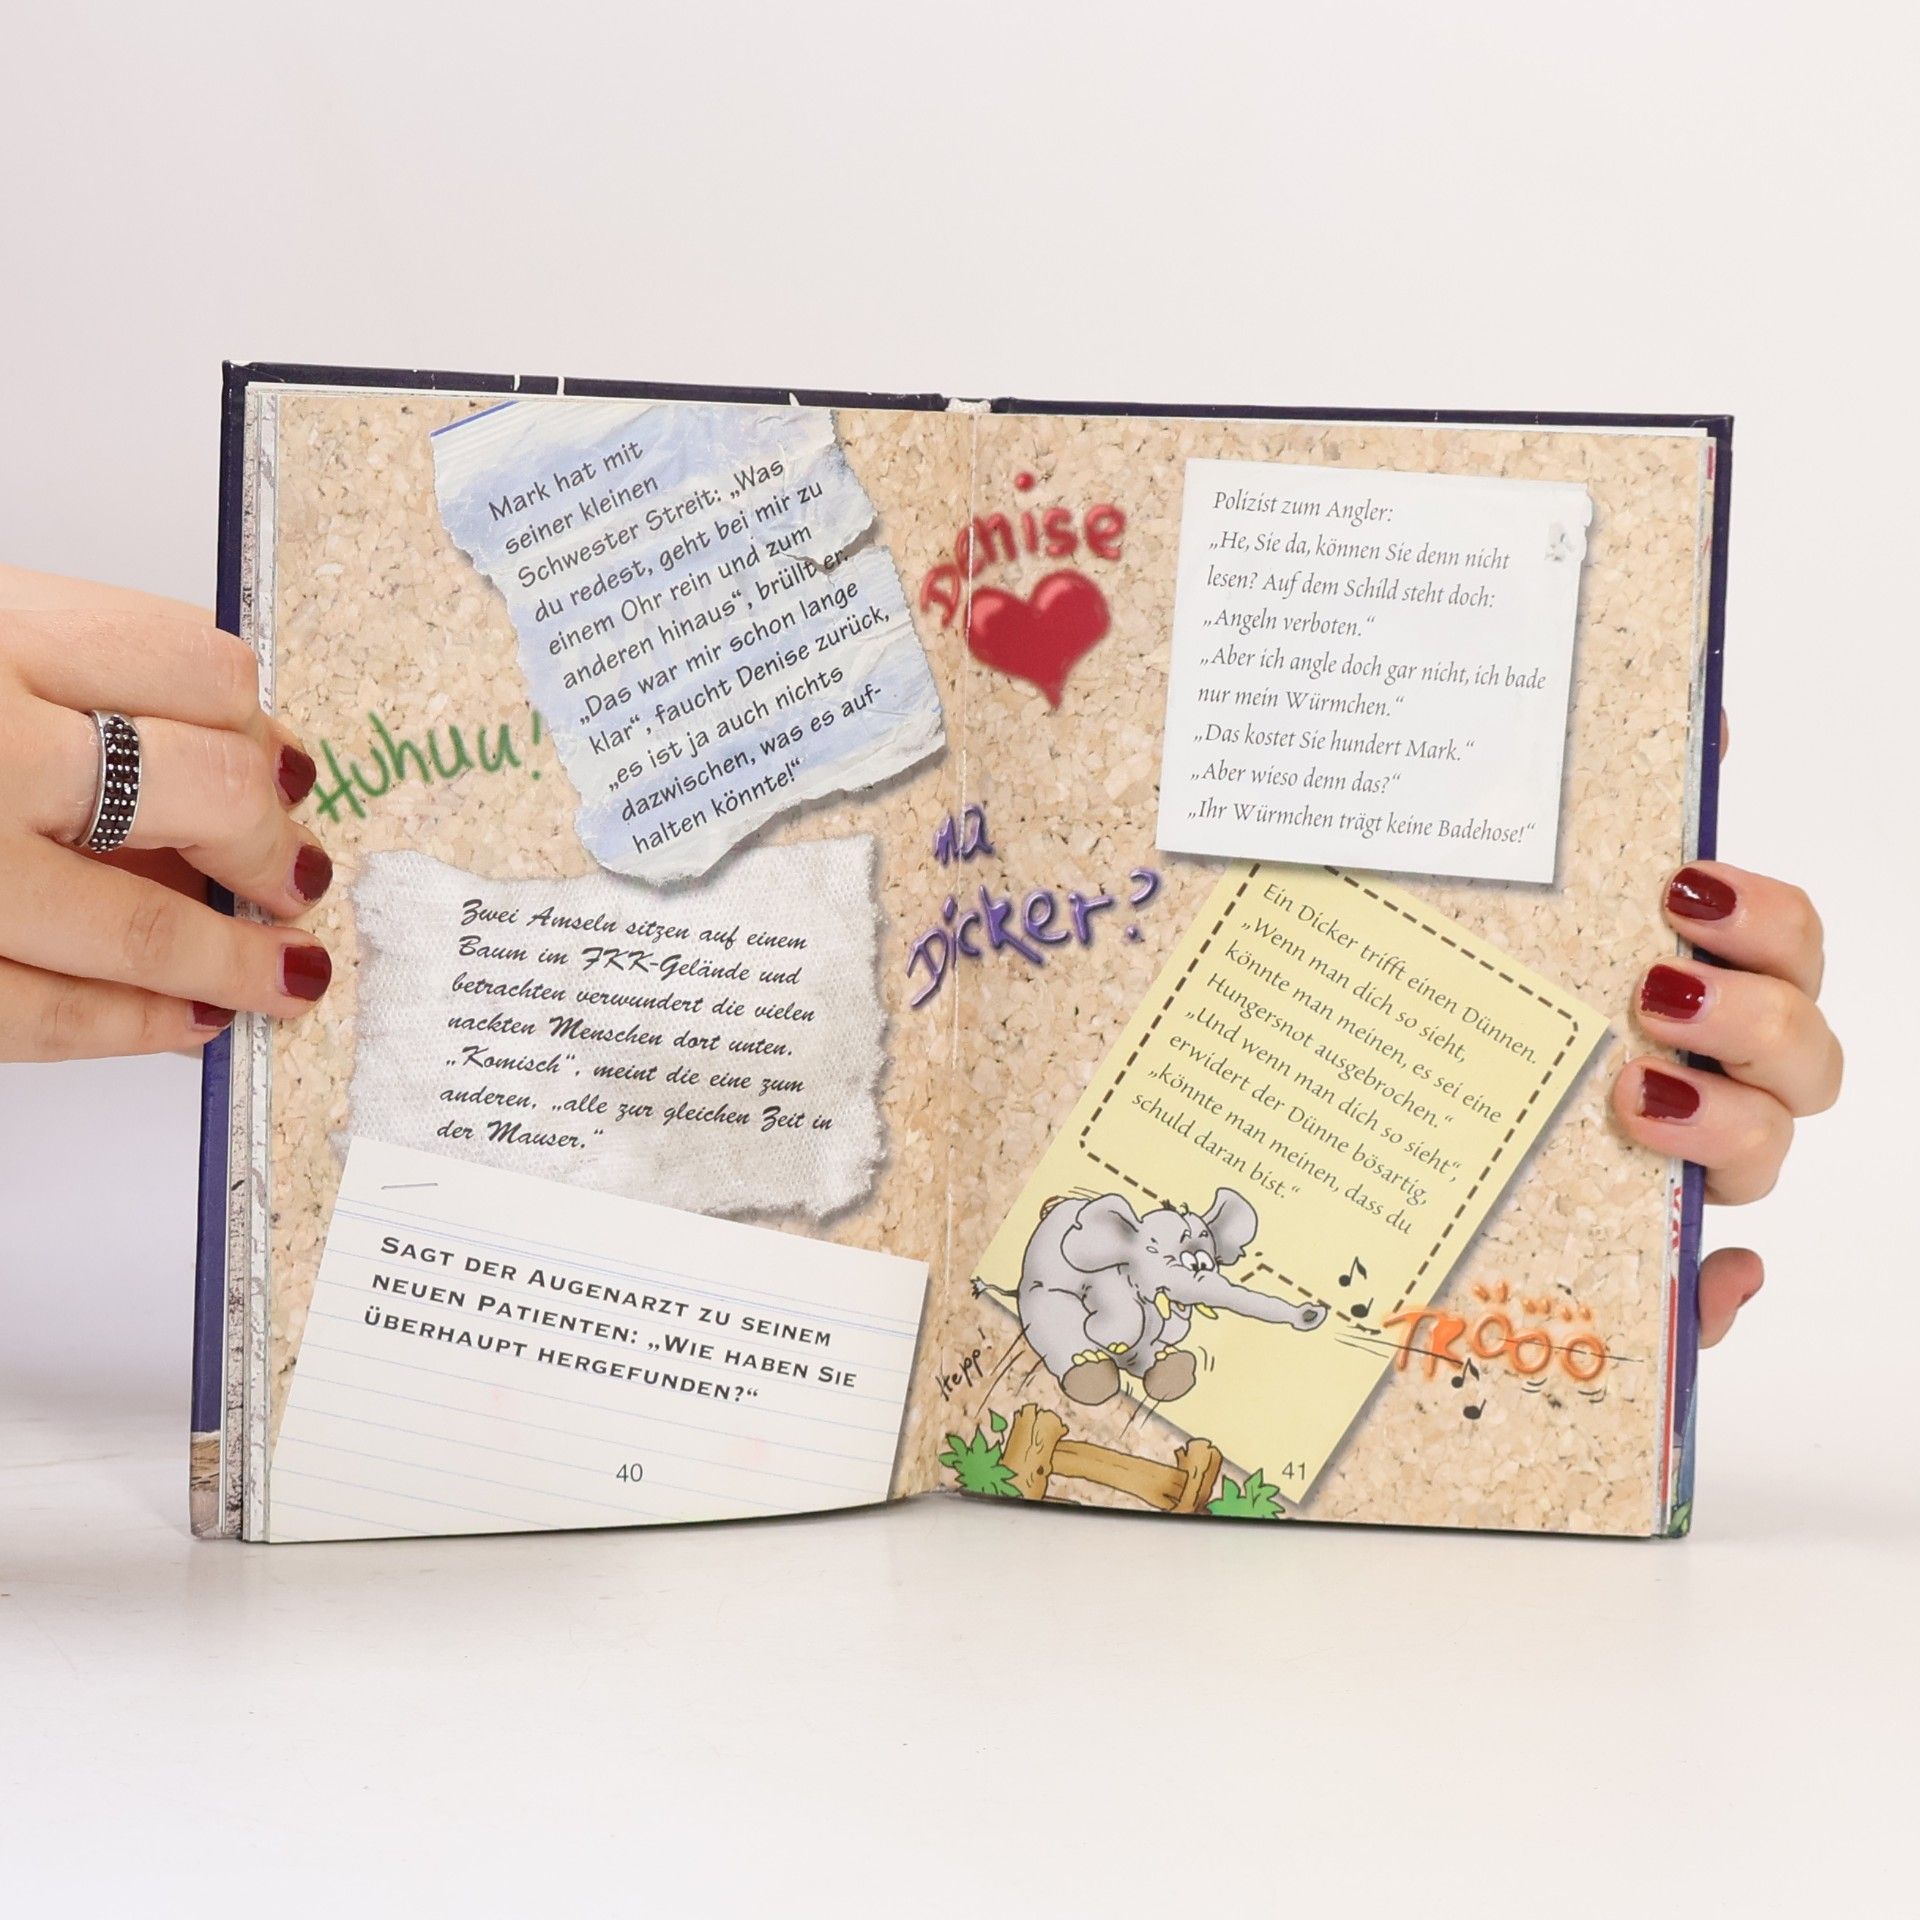 Mark hat mit
seiner kleinen
Schwester Streit: „Was
du redest, geht bei mir zu
einem Ohr rein und zum
anderen hinaus“, brüllt er.
„Das war mir schon lange
klar“, faucht Denise zurück,
„es ist ja auch nichts
dazwischen, was es auf-
halten könnte!“
Huhuu!
Zwei Amseln sitzen auf einem
Baum im FKK-Gelände und
betrachten verwundert die vielen
nackten Menschen dort unten.
„Komisch“, meint die eine zum
anderen, „alle zur gleichen Zeit in
der Mauser.“
SAGT DER AUGENARZT ZU SEINEM
NEUEN PATIENTEN: „WIE HABEN SIE
ÜBERHAUPT HERGEFUNDEN?“
40
Denise
Polizist zum Angler:
„He, Sie da, können Sie denn nicht
lesen? Auf dem Schild steht doch:
„Angeln verboten.“
„Aber ich angle doch gar nicht, ich bade
nur mein Würmchen.“
„Das kostet Sie hundert Mark.“
„Aber wieso denn das?“
„Ihr Würmchen trägt keine Badehose!“
Na
Dicker?
Ein Dicker trifft einen Dünnen.
„Wenn man dich so sieht,
könnte man meinen, es sei eine
Hungersnot ausgebrochen.“
„Und wenn man dich so sieht“,
erwidert der Dünne bösartig,
„könnte man meinen, dass du
schuld daran bist.“
Hepp!
TRÖÖÖ
41